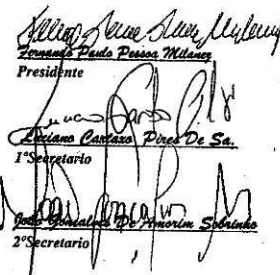 Fernando Paulo Pessoa Milanez
Presidente
Luciano Cartaxo Pires De Sa.
1°Secretario
João Gonsalves De Amorim Sobrinho
2°Secretario